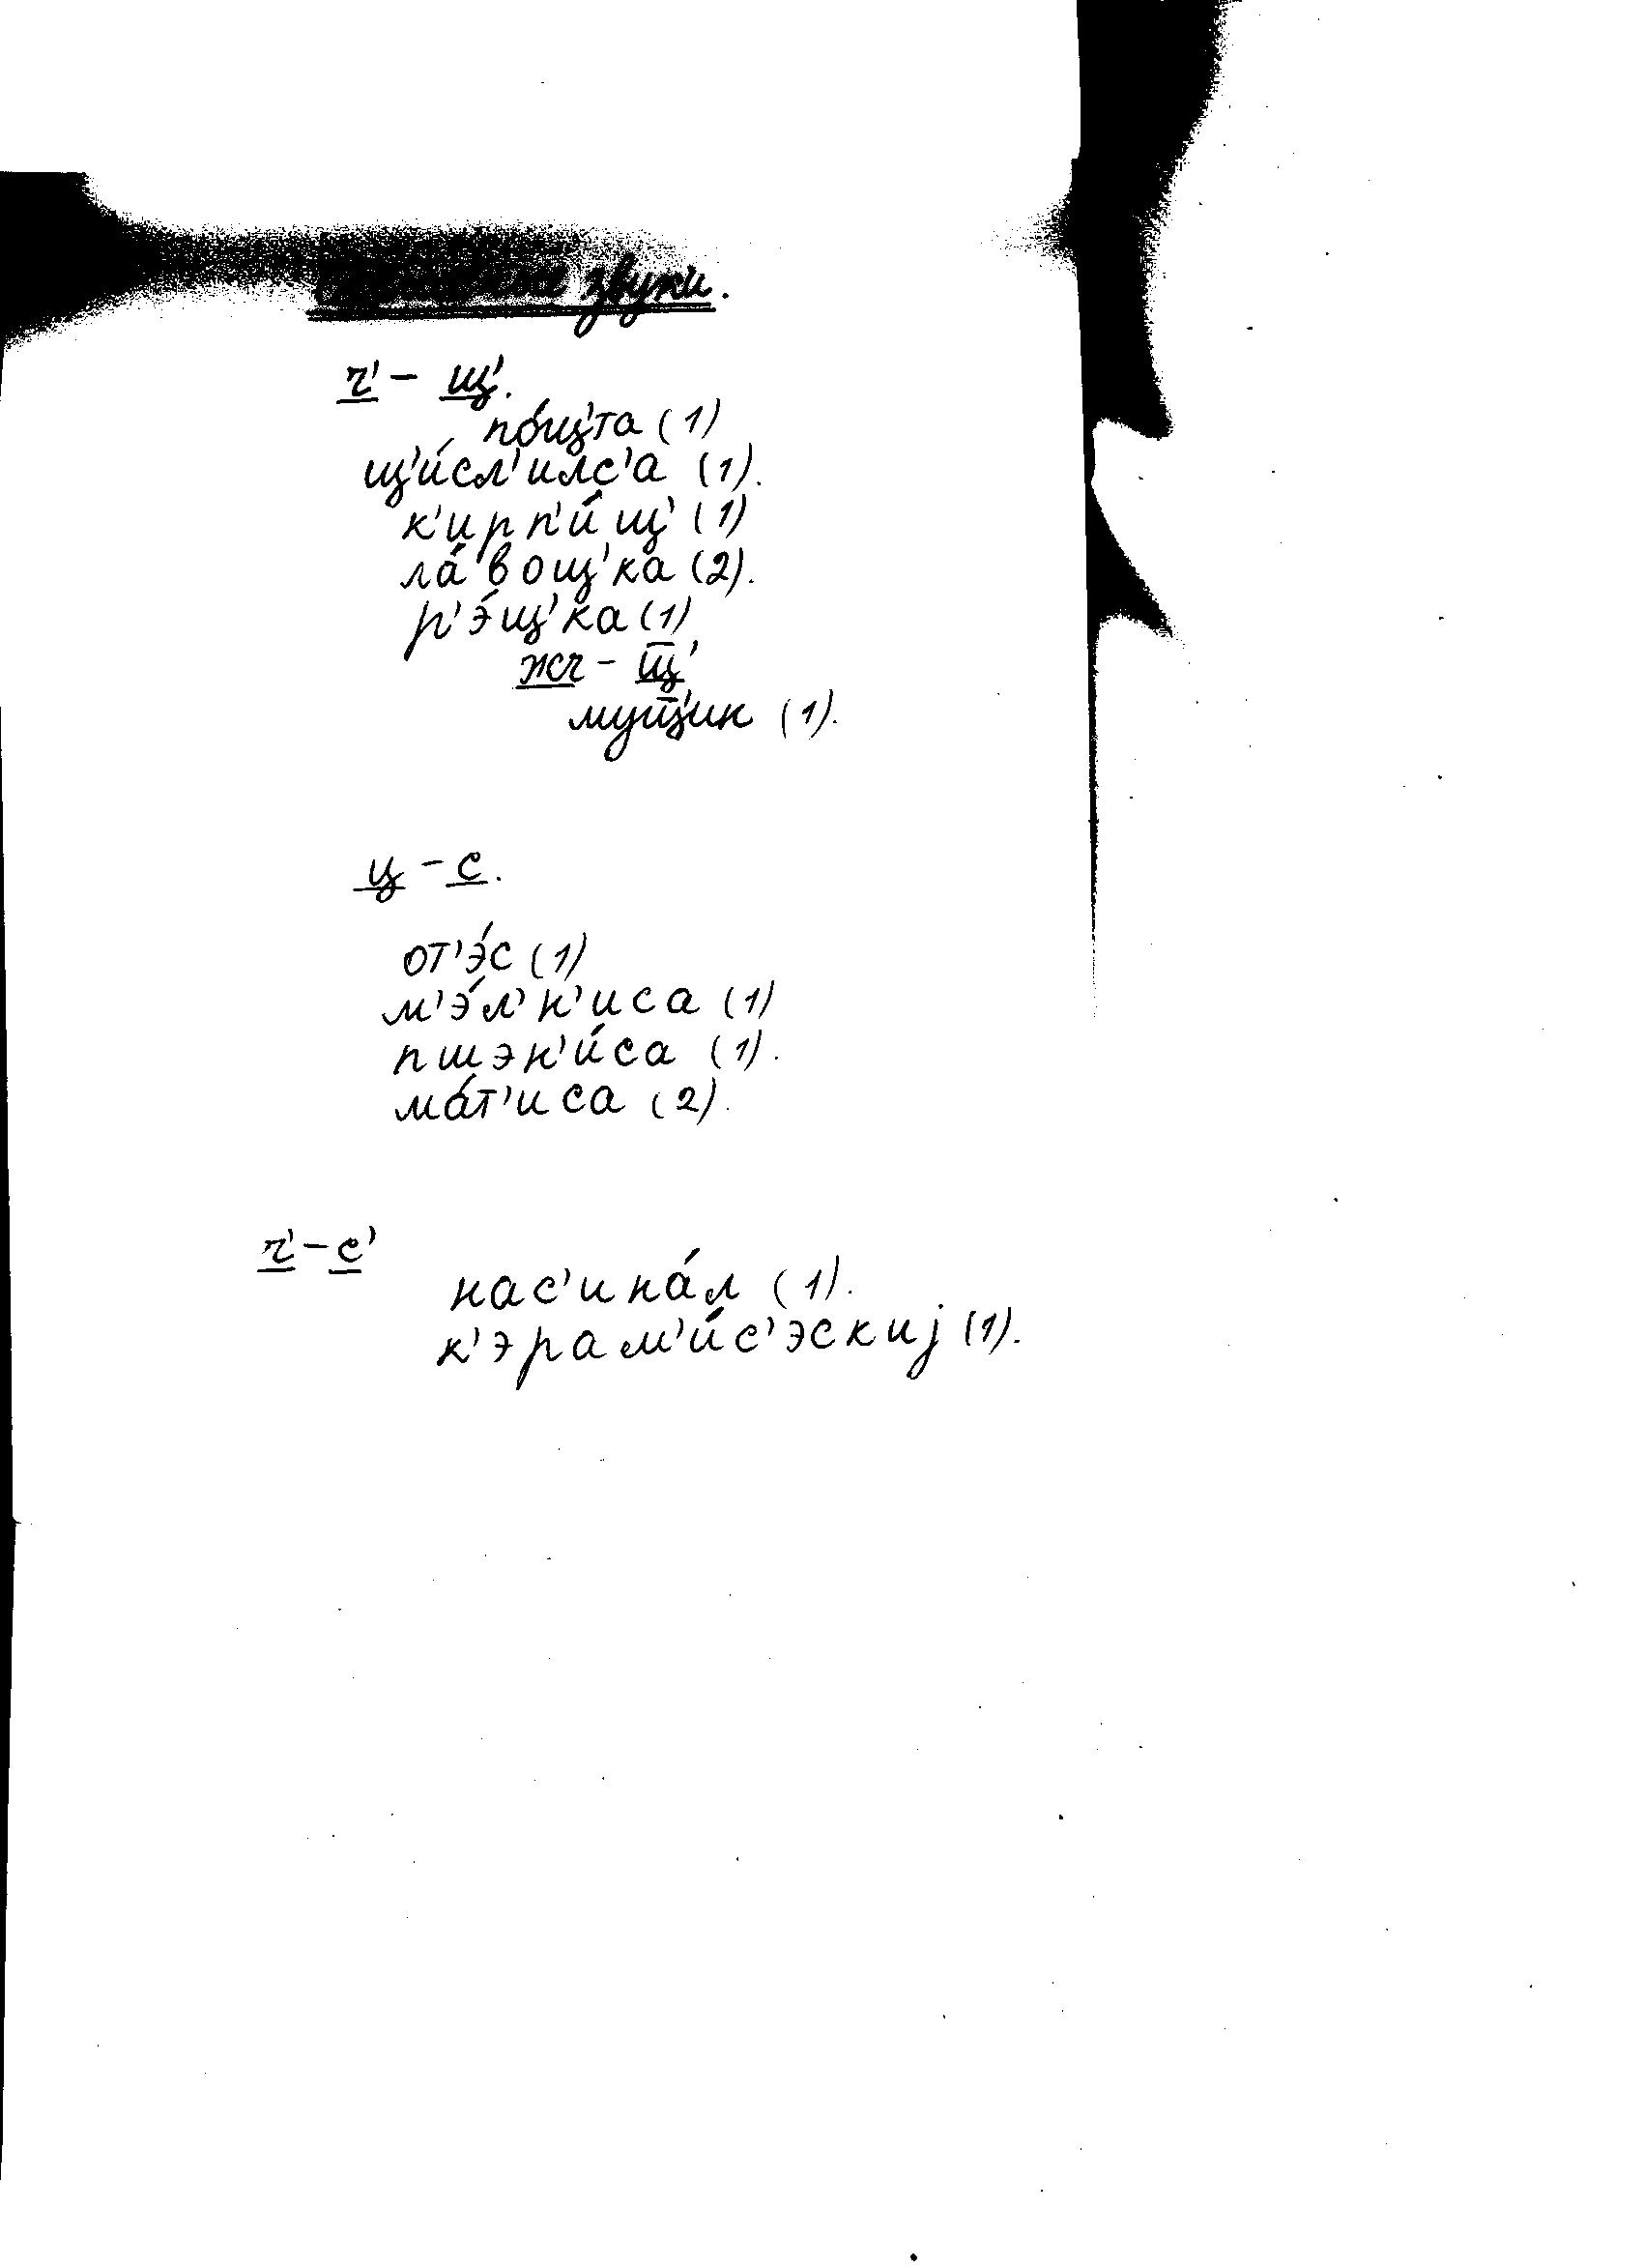 звуки.
ч' – щ'.
по́щ'та (1)
щ'и́сл'илс'а (1).
к'ирп'и́щ' (1)
ла́вощ'ка (2).
р'э́щ'ка (1)
жч – щ̄'
мущ̄'ин (1).
ц – с.
от'э́с (1)
м'э́л'н'иса (1)
пшэн'и́са (1).
ма́т'иса (2).
ч' – с'
нас'ина́л (1).
к'эрам'и́с'эскиј (1).